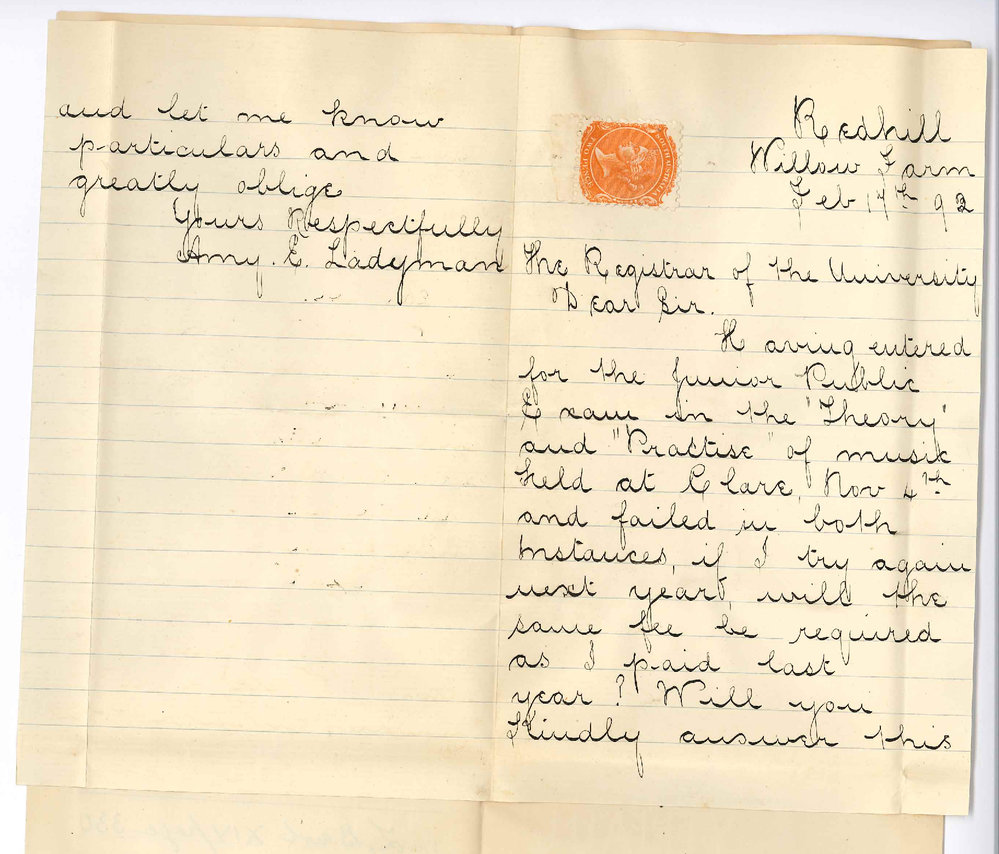 Redhill
Willow Farm
Feb 17th 92
The Registrar of the University
Dear Sir.
Having entered
for the Junior Public
Exam in the "Theory"
and "Practise" of music
held at Clare, Nov 4th
and failed in both
instances, if I try again
next year, will the
same fee be required
as I paid last
year? Will you
Kindly answer this
and let me know
particulars and
greatly oblige
Yours Respectfully
Amy. E. Ladyman
SOUTH AUSTRALIA
TWO PENCE